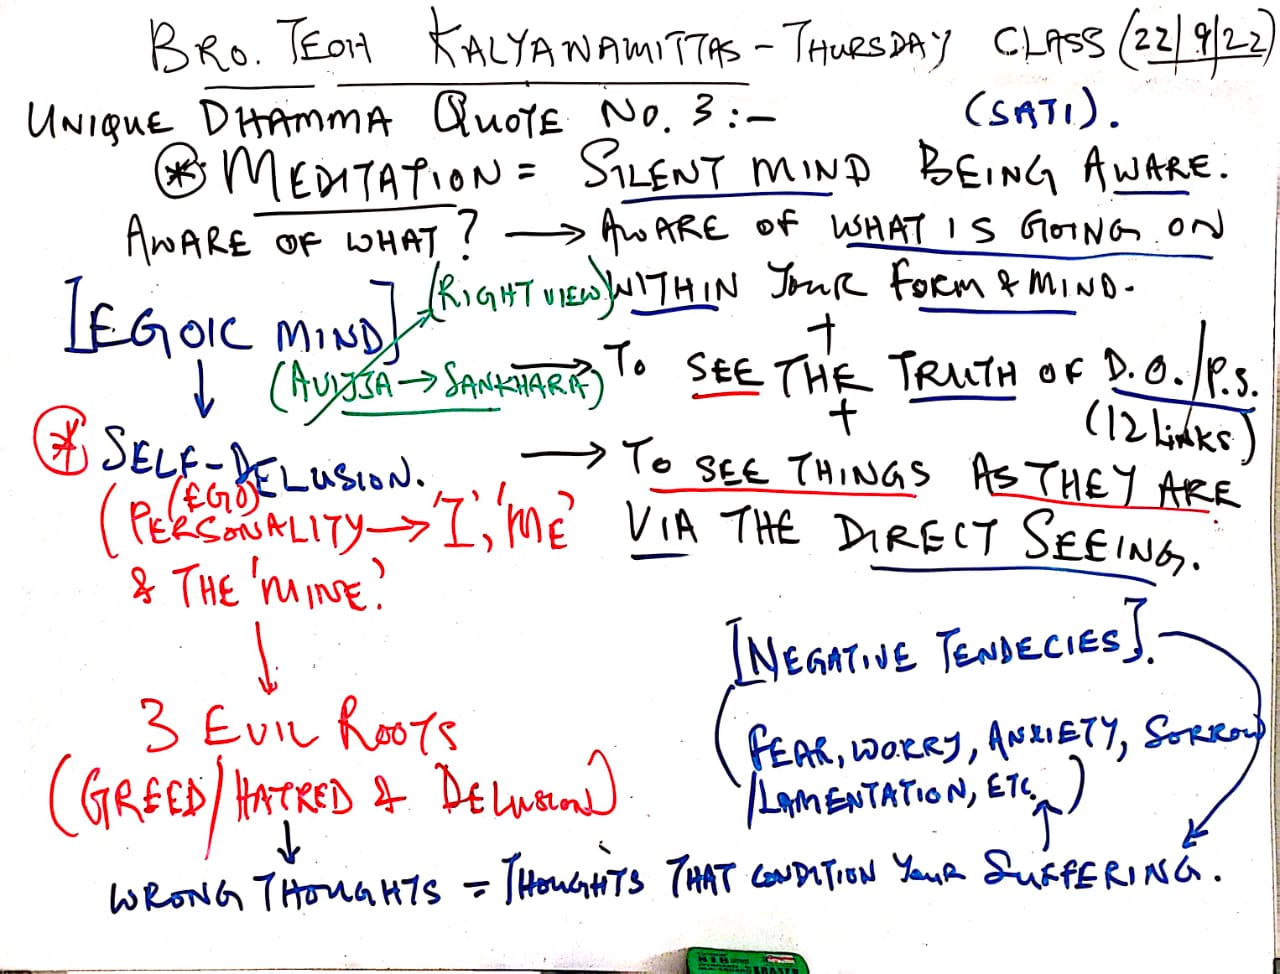 BRO. TEOH KALYANAMITTAS - THURSDAY CLASS (22/9/22)
UNIQUE DHAMMA QUOTE NO. 3 :-
(SATI).
* MEDITATION = SILENT MIND BEING AWARE.
AWARE OF WHAT? → AWARE OF WHAT IS GOING ON
WITHIN YOUR FORM & MIND.
+
→ TO SEE THE TRUTH OF D.O./P.S.
(12 LINKS)
+
→ TO SEE THINGS AS THEY ARE
VIA THE DIRECT SEEING.
[EGOIC MIND]
(RIGHT VIEW)
(AVIJJA → SANKHARA)
* SELF-DELUSION.
(EGO)
(PERSONALITY → 'I', 'ME'
& THE 'MINE'.
3 EVIL ROOTS
(GREED/HATRED & DELUSION)
[NEGATIVE TENDECIES].
(FEAR, WORRY, ANXIETY, SORROW
/LAMENTATION, ETC.)
WRONG THOUGHTS = THOUGHTS THAT CONDITION YOUR SUFFERING.
ERASER